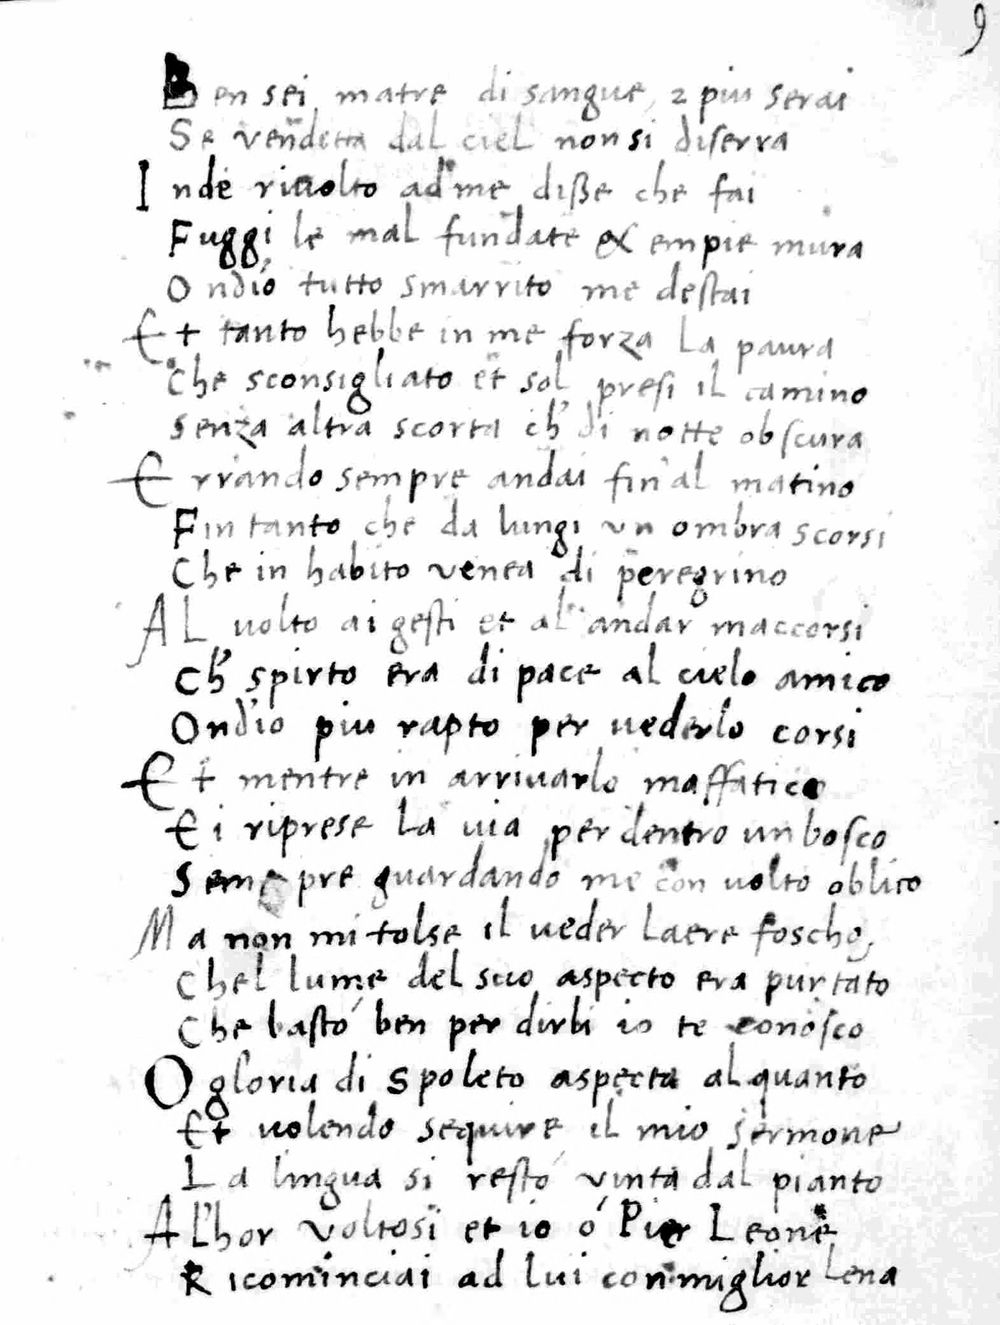 9
Ben sei matre di sangue, 2 piu serai
Se vendetta dal ciel non si diserra
Inde rivolto ad me disse che fai
Fuggi le mal fundate & empie mura
Ond'ió tutto smarrito me destai
Et tanto hebbe in me forza la paura
Che sconsigliato et sol presi il camino
Senza altra scorta ch' di notte obscura
Errando sempre andai fin'al matino
Fin tanto che da lungi un ombra scorsi
Che in habito venea di peregrino
Al uolto ai gesti et al andar maccorsi
Ch' spirto era di pace al cielo amico
Ond'io piu rapto per uederlo corsi
Et mentre in arriuarlo maffatico
Ei riprese la uia per dentro un bosco
Sempre guardando me con uolto oblico
Ma non mi tolse il ueder laere foscho,
Chel lume del suo aspecto era purtato
Che bastó ben per dirli io te conosco
O gloria di Spoleto aspecta alquanto
Et uolendo sequire il mio sermone
La lingua si restó vinta dal pianto
Al'hor voltosi et io ó Pier Leone
Ricominciai ad lui con miglior lena